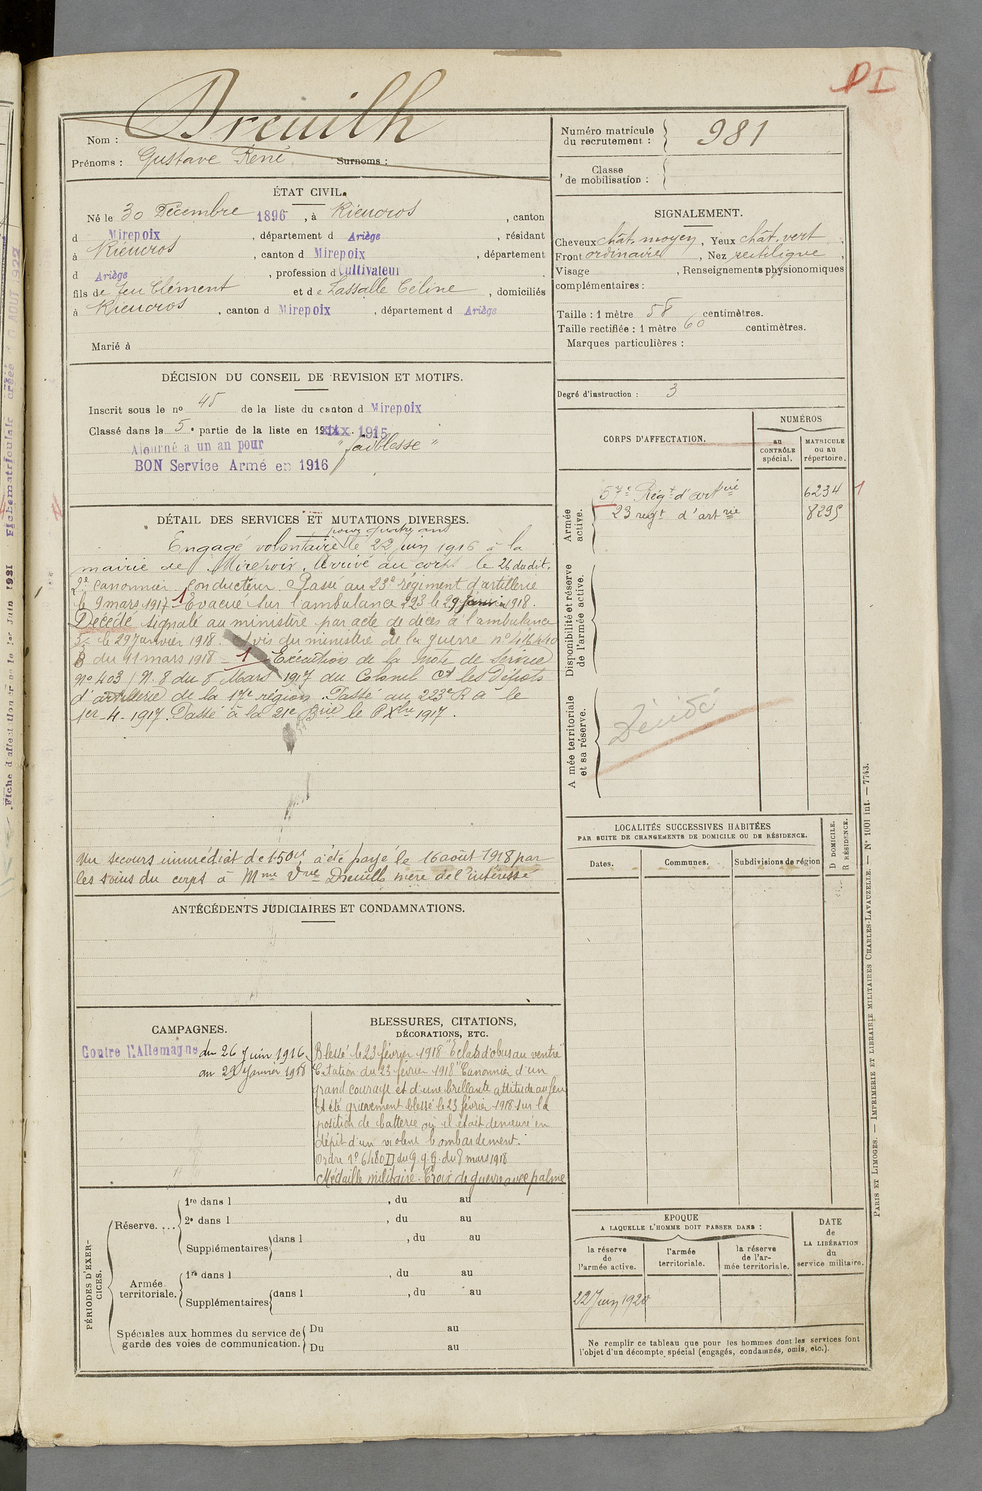 DI
Nom : Dreuilh
Prénoms : Gustave René Surnoms :
Numéro matricule du recrutement : 981
Classe de mobilisation :
ÉTAT CIVIL.
Né le 30 Décembre 1896, à Rieucros, canton
d Mirepoix, département d Ariège, résidant
à Rieucros, canton d Mirepoix, département
d Ariège, profession d Cultivateur
fils de feu Clément et de Lassalle Céline, domiciliés
à Rieucros, canton d Mirepoix, département d Ariège
Marié à
SIGNALEMENT.
Cheveux chât. moyen, Yeux chât. vert
Front ordinaire, Nez rectiligne,
Visage , Renseignements physionomiques
complémentaires :
Taille : 1 mètre 58 centimètres.
Taille rectifiée : 1 mètre 60 centimètres.
Marques particulières :
Degré d'instruction : 3
DÉCISION DU CONSEIL DE REVISION ET MOTIFS.
Inscrit sous le no 45 de la liste du canton d Mirepoix
Classé dans la 5e partie de la liste en 1915.
Ajourné a un an pour "faiblesse"
BON Service Armé en 1916
CORPS D'AFFECTATION.
NUMÉROS
au CONTRÔLE spécial.
MATRICULE ou au répertoire.
Armée active.
57e Régt d'artrie 6234 1
23 regt d'artrie 8295
Disponibilité et réserve de l'armée active.
Armée territoriale et sa réserve.
Décédé
DÉTAIL DES SERVICES ET MUTATIONS DIVERSES.
pour quatre ans
Engagé volontaire le 22 juin 1916 à la
mairie de Mirepoix. Arrivé au corps le 26 du dit.
2e canonnier conducteur. Passé au 23e régiment d'artillerie
le 9 mars 1917. 1 Evacué sur l'ambulance 223 le 29 janvier 1918.
Décédé signalé au ministère par acte de décès à l'ambulance
le 29 janvier 1918. Avis du ministre de la guerre no
B du 11 mars 1918 - 1 Exécution de la note de service
no 403 / N. 8 du 8 Mars 1917 du Colonel Ct les Dépots
d'artillerie de la 17e région. Passé au 223e R a le
1er-4-1917. Passé à la 21e Brie le 8 Xbre 1917.
Un secours immédiat de 150f a été payé le 16 août 1918 par
les soins du corps à Mme Vve Dreuilh mère de l'intéressé
LOCALITÉS SUCCESSIVES HABITÉES
PAR SUITE DE CHANGEMENTS DE DOMICILE OU DE RÉSIDENCE.
Dates. Communes. Subdivisions de région
D DOMICILE.
R RÉSIDENCE.
ANTÉCÉDENTS JUDICIAIRES ET CONDAMNATIONS.
CAMPAGNES.
Contre l'Allemagne du 26 Juin 1916
au 29 Janvier 1918
BLESSURES, CITATIONS,
DÉCORATIONS, ETC.
Blessé le 23 février 1918 "Eclats d'obus au ventre"
Citation du 23 février 1918 "Canonnier d'un
grand courage et d'une brillante attitude au feu
A été gravement blessé le 23 février 1918 sur la
position de batterie où il était demeuré en
dépit d'un violent bombardement.
Ordre no 6480 D du G.Q.G. du 8 mars 1918
Médaille militaire. Croix de guerre avec palme
PÉRIODES D'EXERCICES.
Réserve....
1re dans l , du au
2e dans l , du au
Supplémentaires dans l , du au
Armée territoriale.
1re dans l , du au
Supplémentaires dans l , du au
Spéciales aux hommes du service de garde des voies de communication.
Du au
Du au
EPOQUE
A LAQUELLE L'HOMME DOIT PASSER DANS :
la réserve de l'armée active.
l'armée territoriale.
la réserve de l'armée territoriale.
DATE de LA LIBÉRATION du service militaire.
22 Juin 1920
Ne remplir ce tableau que pour les hommes dont les services font
l'objet d'un décompte spécial (engagés, condamnés, omis, etc.).
PARIS ET LIMOGES. — IMPRIMERIE ET LIBRAIRIE MILITAIRES CHARLES-LAVAUZELLE. — No 1001 int. — 7743.